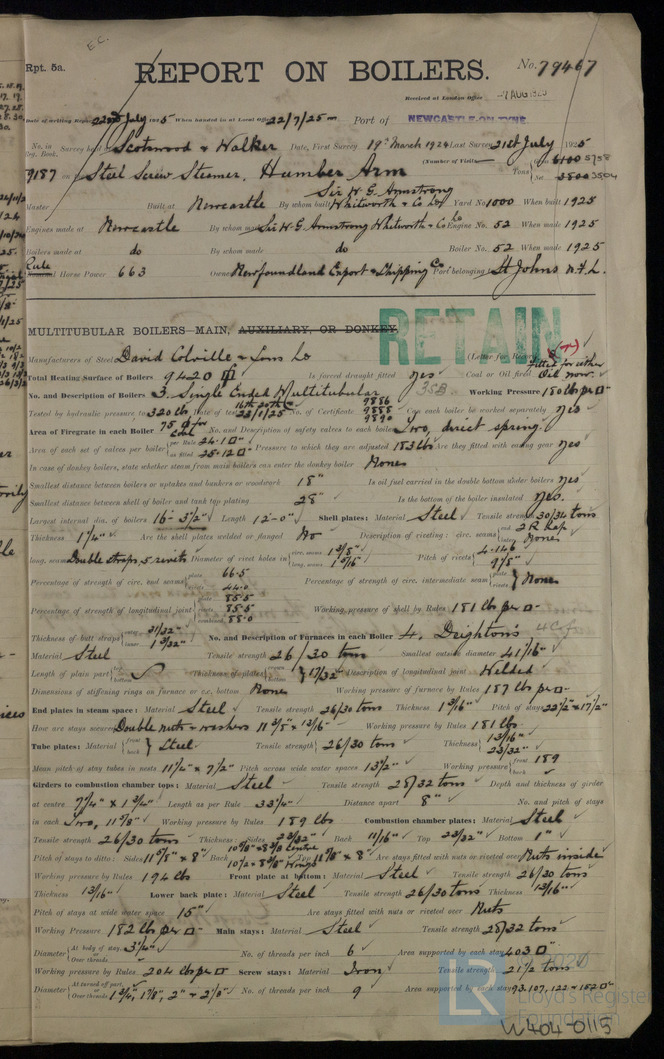 E.C.
Rpt. 5a.
REPORT ON BOILERS.
No. 79467
Received at London Office
Date of writing Report 22nd July 1925 When handed in at Local Office 22/7/25 Port of NEWCASTLE-ON-TYNE
No. in Reg. Book. Survey held Scotswood & Walker Date, First Survey 19th March 1924 Last Survey 21st July 1925
(Number of Visits
9187 on Steel Screw Steamer, Humber Arm Tons Gross 6100 5758 Net 3800 3504
Master Built at Newcastle By whom built Sir W.G. Armstrong Whitworth & Co Ld Yard No 1000 When built 1925
Engines made at Newcastle By whom Sir W.G. Armstrong Whitworth & Co Ld Engine No. 52 When made 1925
Boilers made at do By whom made do Boiler No. 52 When made 1925
Rule Nominal Horse Power 663 Owners Newfoundland Export & Shipping Co Port belonging to St Johns N.F.L.
RETAIN
MULTITUBULAR BOILERS—MAIN, AUXILIARY, OR DONKEY
Manufacturers of Steel David Colville & Sons Ld (Letter for Record S
Total Heating Surface of Boilers 9420 Is forced draught fitted yes Coal or Oil fired fitted for either Oil now
No. and Description of Boilers 3. Single Ended Multitubular 35B Working Pressure 180 lbs per □"
Tested by hydraulic pressure to 320 lbs Date of test 23/1/25 No. of Certificate 9886 9888 9890 Can each boiler be worked separately yes
Area of Firegrate in each Boiler 75 □ for coal No. and Description of safety valves to each boiler Two, direct spring
Area of each set of valves per boiler per Rule 24.1 □" as fitted 25.12 □" Pressure to which they are adjusted 183 lbs Are they fitted with easing gear yes
In case of donkey boilers, state whether steam from main boilers can enter the donkey boiler None
Smallest distance between boilers or uptakes and bunkers or woodwork 18" Is oil fuel carried in the double bottom under boilers yes
Smallest distance between shell of boiler and tank top plating 28" Is the bottom of the boiler insulated yes.
Largest internal dia. of boilers 16'-3 1/2" Length 12'-0" Shell plates: Material Steel Tensile strength 30/34 tons
Thickness 1 1/4" Are the shell plates welded or flanged No Description of riveting: circ. seams end 2R Lap inter None
long. seams Double straps, 5 rivets Diameter of rivet holes in circ. seams 1 3/8" long. seams 1 5/16" Pitch of rivets 4.146 9 7/8"
Percentage of strength of circ. end seams plate 66.5 rivets 44.0 Percentage of strength of circ. intermediate seam plate rivets None
Percentage of strength of longitudinal joint plate 85.5 rivets 85.5 combined 88.0 Working pressure of shell by Rules 181 lbs per □"
Thickness of butt straps outer 31/32" inner 1 3/32" No. and Description of Furnaces in each Boiler 4, Deighton's
Material Steel Tensile strength 26/30 tons Smallest outside diameter 41/16"
Length of plain part top bottom Thickness of plates crown bottom 17/32" Description of longitudinal joint Welded
Dimensions of stiffening rings on furnace or c.c. bottom None Working pressure of furnace by Rules 187 lbs per □"
End plates in steam space: Material Steel Tensile strength 26/30 tons Thickness 1 3/16" Pitch of stays 22 1/2" × 17 1/2"
How are stays secured Double nuts & washers 11 3/8" × 13/16" Working pressure by Rules 181 lbs
Tube plates: Material front back Steel Tensile strength 26/30 tons Thickness 13/16" 23/32"
Mean pitch of stay tubes in nests 11 1/4" × 7 1/2" Pitch across wide water spaces 13 1/2" Working pressure front 189 back
Girders to combustion chamber tops: Material Steel Tensile strength 28/32 tons Depth and thickness of girder
at centre 7 3/4" × 1 3/4" Length as per Rule 33 1/4" Distance apart 8" No. and pitch of stays
in each Two, 11 7/8" Working pressure by Rules 189 lbs Combustion chamber plates: Material Steel
Tensile strength 26/30 tons Thickness: Sides 23/32" Back 11/16" Top 23/32" Bottom 1"
Pitch of stays to ditto: Sides 11 7/8" × 8" Back 10 5/8" × 8 3/8" Centre 10 1/2 × 8 3/8" Wings Top 11 7/8" × 8" Are stays fitted with nuts or riveted over Nuts inside
Working pressure by Rules 194 lbs Front plate at bottom: Material Steel Tensile strength 26/30 tons
Thickness 13/16" Lower back plate: Material Steel Tensile strength 26/30 tons Thickness 13/16"
Pitch of stays at wide water space 15" Are stays fitted with nuts or riveted over Nuts
Working Pressure 182 lbs per □" Main stays: Material Steel Tensile strength 28/32 tons
Diameter At body of stay, Over threads 3 1/4" No. of threads per inch 6 Area supported by each stay 403 □"
Working pressure by Rules 204 lbs per □" Screw stays: Material Iron Tensile strength 21 1/2 tons
Diameter At turned off part, Over threads 1 3/4, 1 7/8, 2" & 2 1/8" No. of threads per inch 9 Area supported by each stay 93.107, 122 & 152 □"
LR Lloyd's Register Foundation
W404-0115